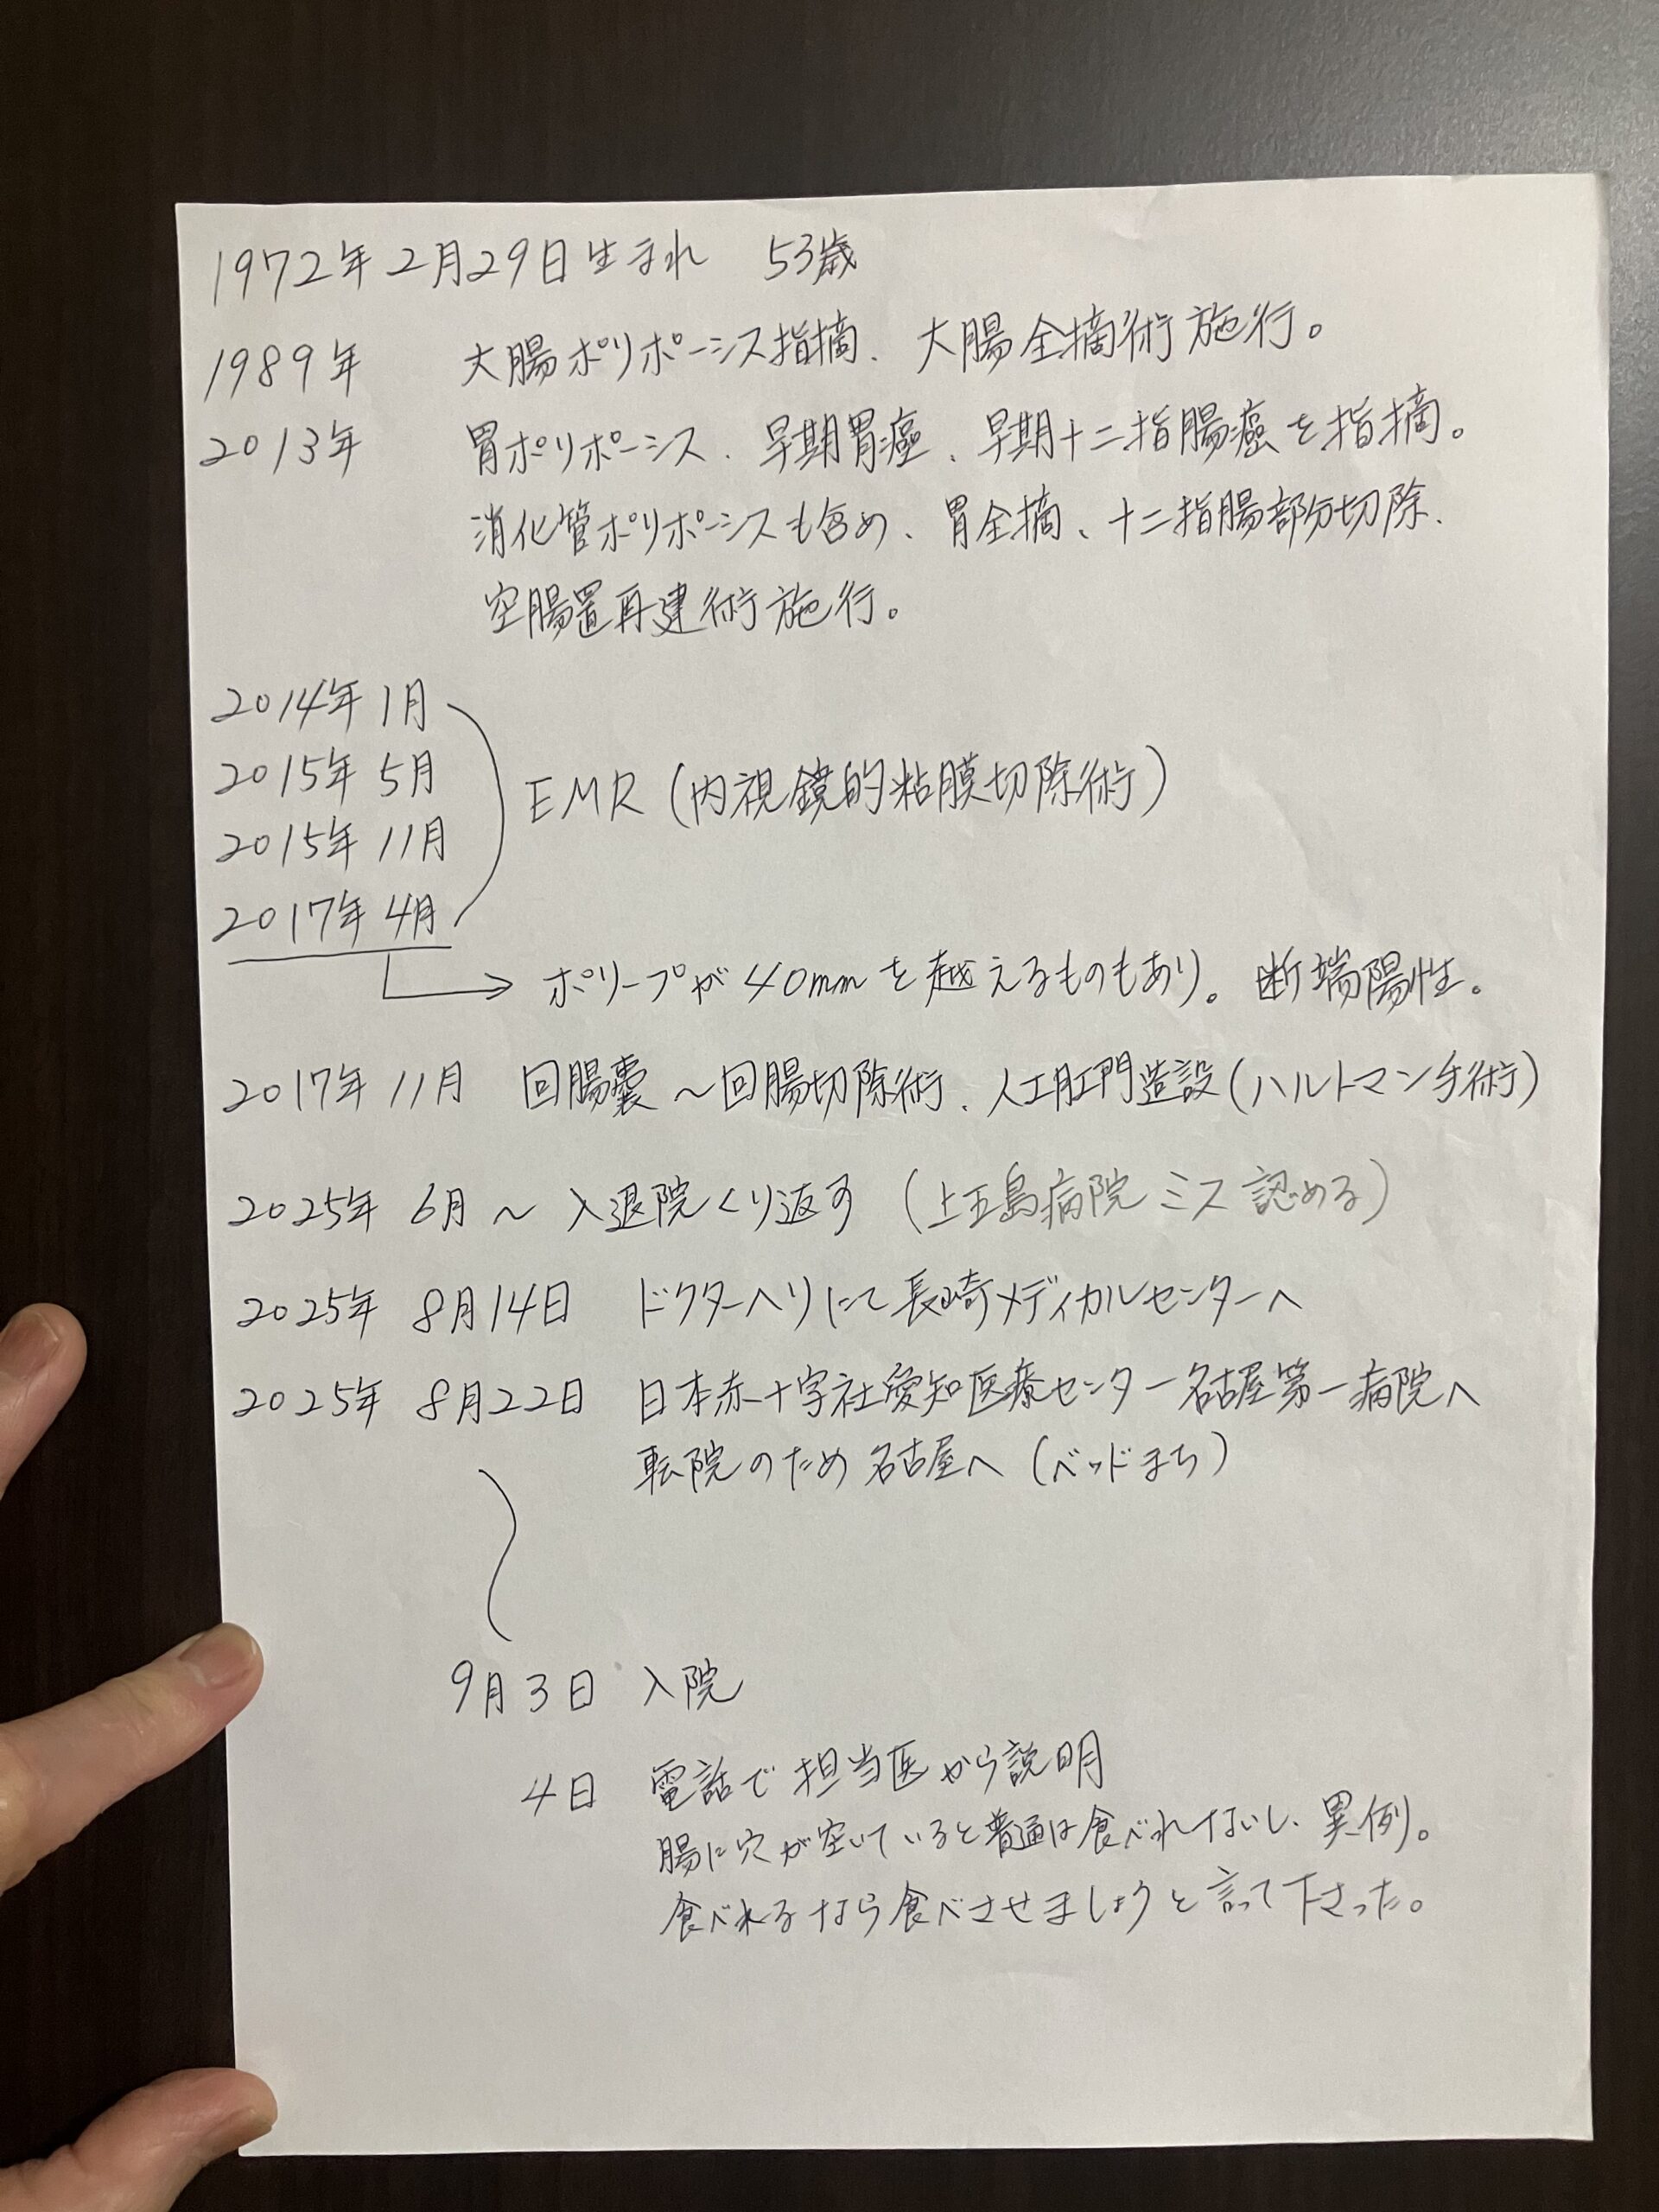 1972年2月29日生まれ 53歳
1989年 大腸ポリポーシス指摘、大腸全摘術施行。
2013年 胃ポリポーシス、早期胃癌、早期十二指腸癌を指摘。
消化管ポリポーシスも含め、胃全摘、十二指腸部分切除、
空腸置再建術施行。
2014年1月
2015年5月
EMR(内視鏡的粘膜切除術)
2015年11月
2017年4月
→ポリープが40mmを越えるものもあり。断端陽性。
2017年11月 回腸嚢~回腸切除術、人工肛門造設(ハルトマン手術)
2025年6月~入退院くり返す (上五島病院ミス認める)
2025年8月14日 ドクターヘリにて長崎メディカルセンターへ
2025年8月22日 日本赤十字社愛知医療センター名古屋第一病院へ
転院のため名古屋へ(ベッドまち)
9月3日 入院
4日 電話で担当医から説明
腸に穴が空いていると普通は食べれないし、異例。
食べれるなら食べさせましょうと言って下さった。